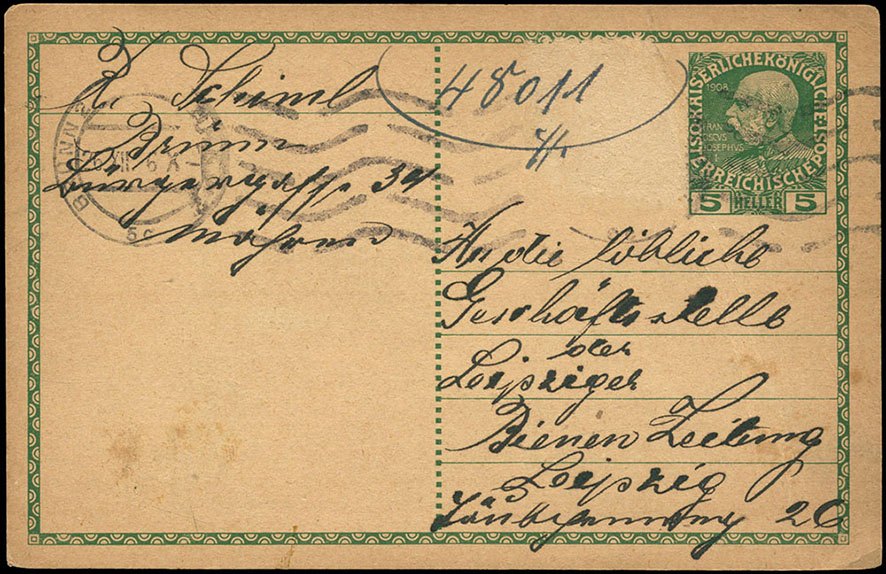 R. Schiml
Brünn
Bürgergasse 34
Mähren
BRÜNN
5c
48011
KAISERLICHEKÖNIGLICHE
ÖSTERREICHISCHEPOST
1908
FRAN
CISCVS
IOSEPHVS
I
5 HELLER 5
An die löbliche
Geschäftsstelle
der
Leipziger
Bienen Zeitung
Leipzig
26